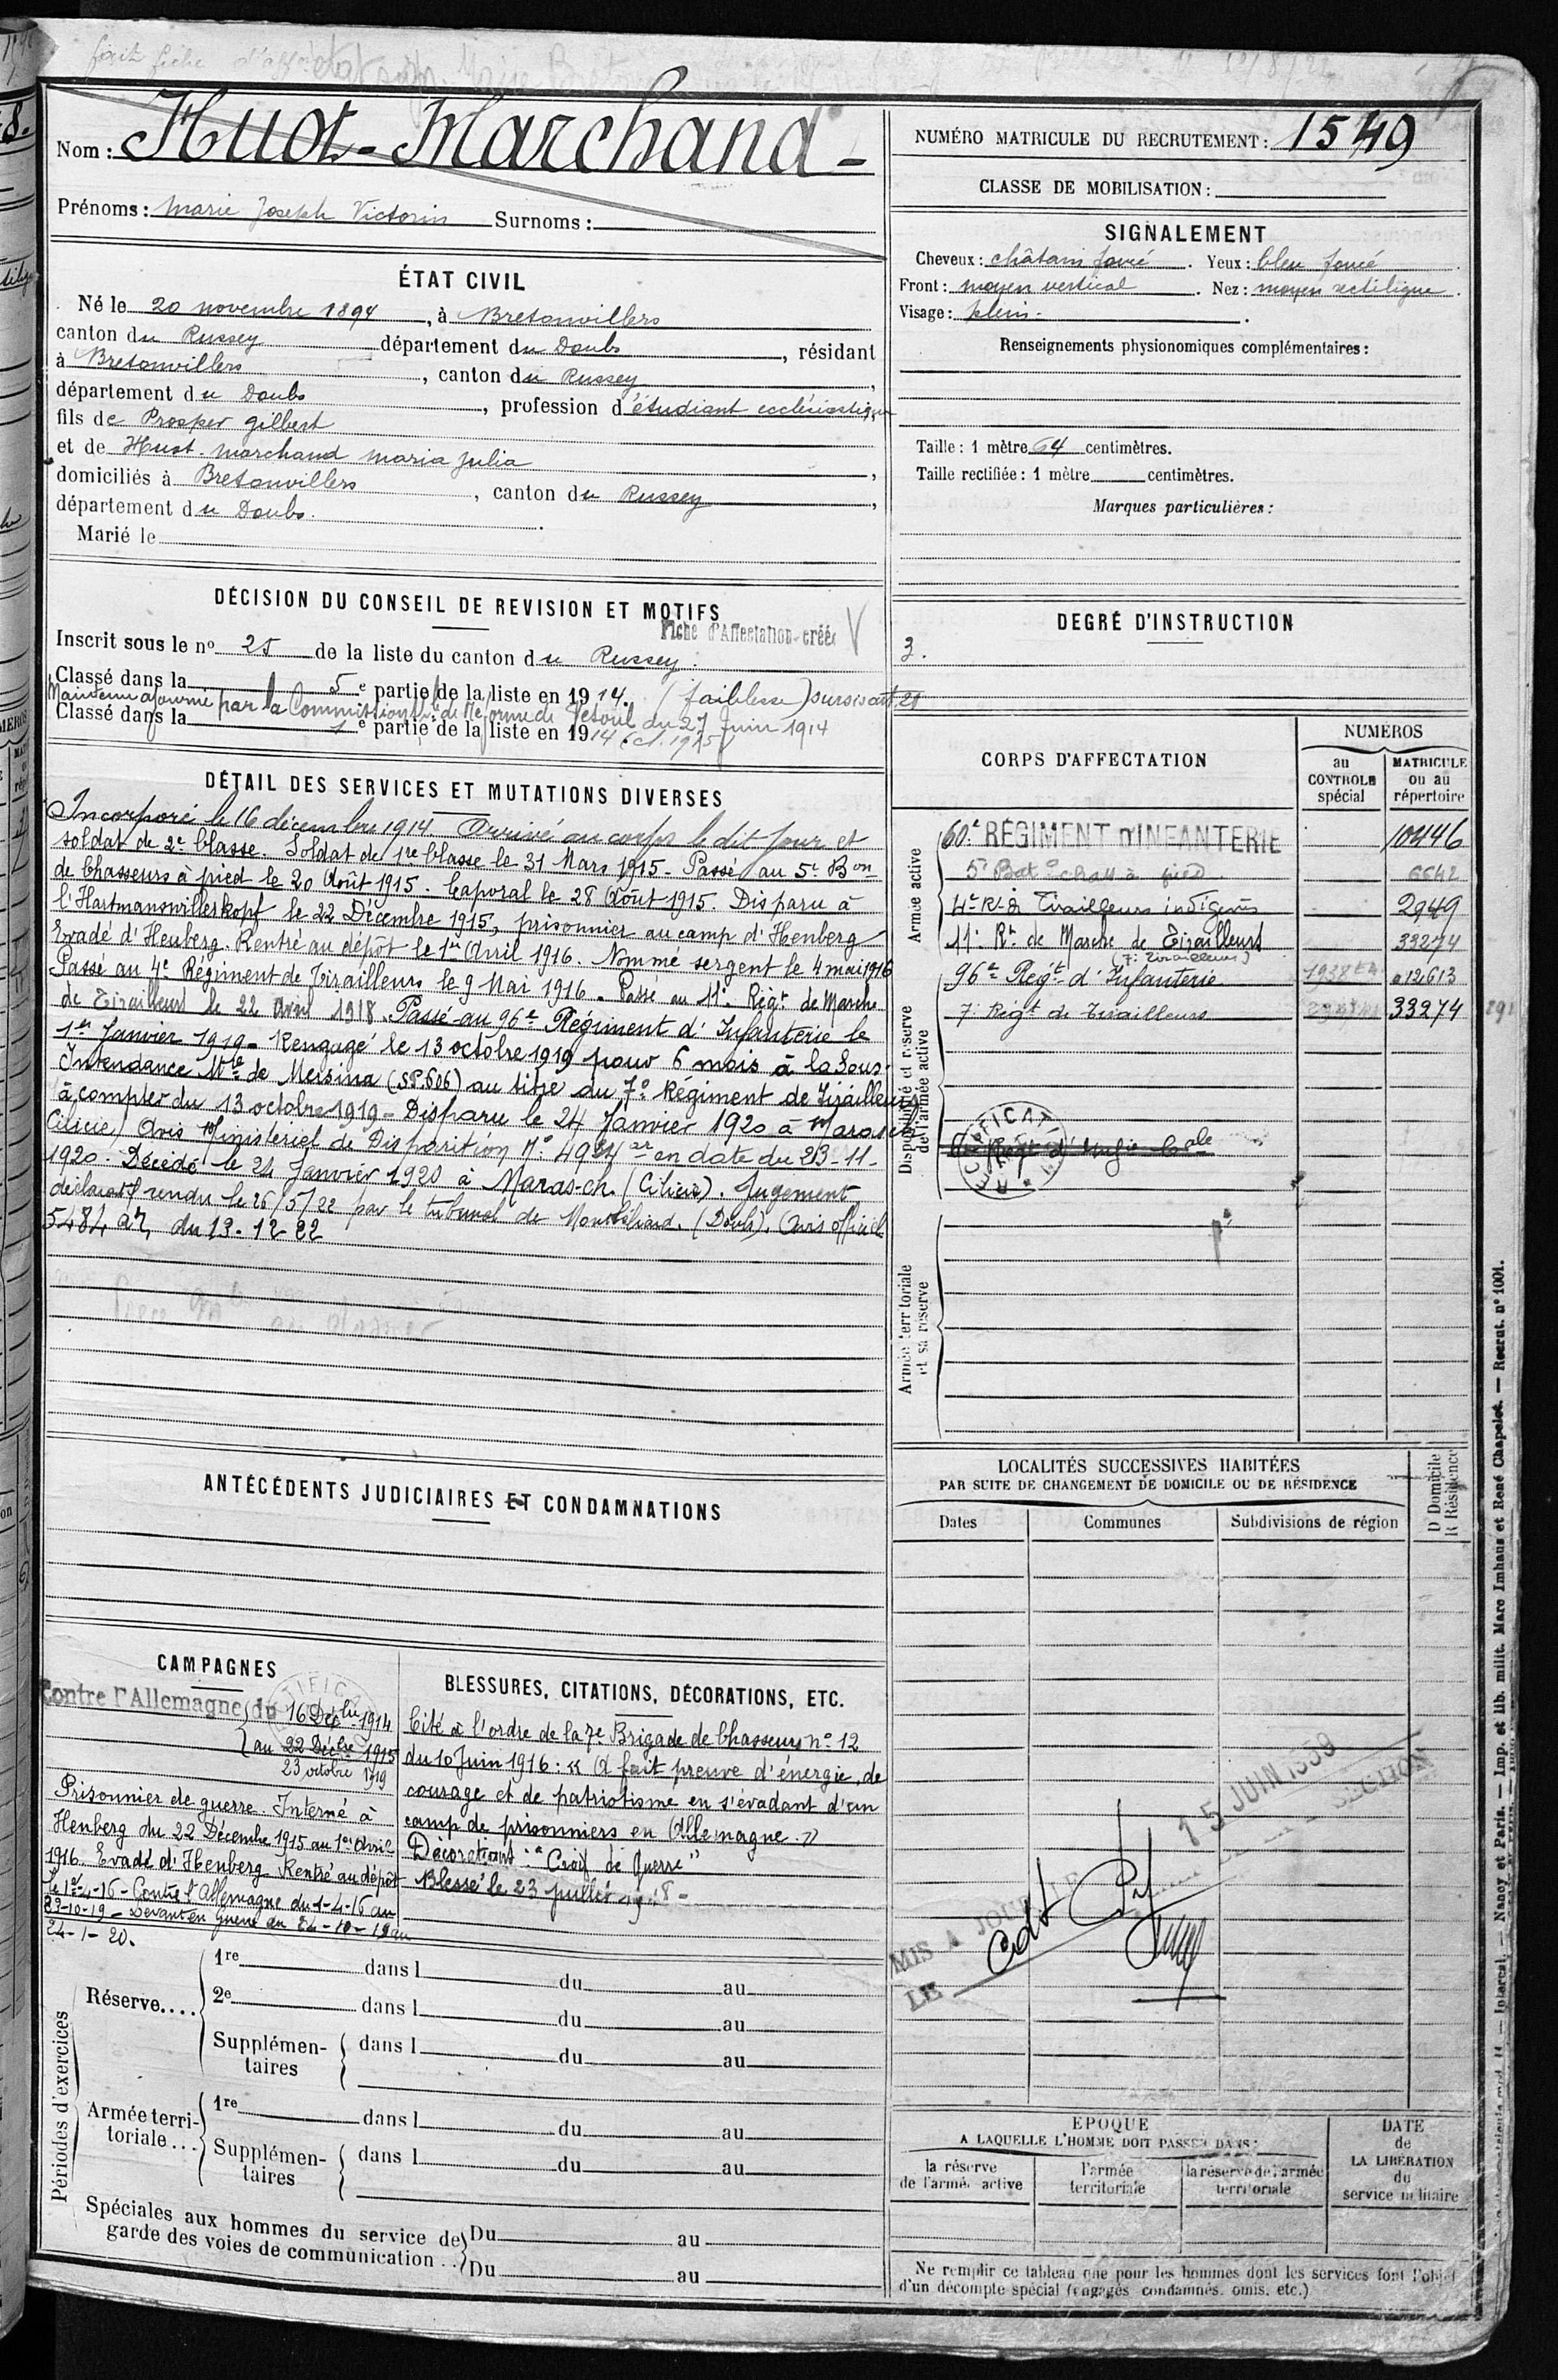 Nom : Huot-Marchand-
Prénoms : Marie Joseph Victorin Surnoms :
ÉTAT CIVIL
Né le 20 novembre 1894, à Bretonvillers
canton du Russey département du Doubs, résidant
à Bretonvillers, canton du Russey,
département du Doubs, profession d'étudiant ecclésiastique
fils de Prosper Gilbert
et de Huot-Marchand Maria Julia,
domiciliés à Bretonvillers, canton du Russey,
département du Doubs.
Marié le
DÉCISION DU CONSEIL DE REVISION ET MOTIFS
Fiche d'Affectation créée
Inscrit sous le nº 25 de la liste du canton du Russey.
Classé dans la 5e partie de la liste en 1914. (faiblesse)
Maintenu ajourné par la Commission de Réforme de Vesoul du 27 Juin 1914
Classé dans la 1e partie de la liste en 1914 (cl. 1915)
DÉTAIL DES SERVICES ET MUTATIONS DIVERSES
Incorporé le 16 décembre 1914 Arrivé au corps le dit jour et
soldat de 2e Classe. Soldat de 1re Classe le 31 Mars 1915. Passé au 5e Bon
de Chasseurs à pied le 20 Août 1915. Caporal le 28 Août 1915. Disparu à
l'Hartmanswillerkopf le 22 Décembre 1915, prisonnier au camp d'Henberg
Evadé d'Heuberg. Rentré au dépôt le 1er Avril 1916. Nommé sergent le 4 mai 1916
Passé au 4e Régiment de Tirailleurs le 9 Mai 1916. Passé au 11e Régt de Marche
de Tirailleurs le 22 Avril 1918. Passé au 96e Régiment d'Infanterie le
1er Janvier 1919- Rengagé le 13 octobre 1919 pour 6 mois à la Sous-
Intendance Mre de Mersina (SP.606) au titre du 7e Régiment de Tirailleurs
à compter du 13 octobre 1919- Disparu le 24 Janvier 1920 à Marasch
Cilicie) Avis Ministériel de Disparition Nº 4924 ar en date du 23-11-
1920. Décédé le 24 Janvier 1920 à Maras-ch. (Cilicie). Jugement
déclaratif rendu le 26/5/22 par le tribunal de Montbéliard. (Doubs). (Avis officiel
5484 du 13-12-22
ANTÉCÉDENTS JUDICIAIRES ET CONDAMNATIONS
CAMPAGNES
Contre l'Allemagne du 16 Décbre 1914
au 22 Décbre 1915
23 octobre 1919
Prisonnier de guerre. Interné à
Henberg du 22 Décembre 1915 au 1er Avril
1916. Evadé d'Henberg Rentré au dépôt
le 1er-4-16- Contre l'Allemagne du 1-4-16 au
23-10-19- Levant en Guerre du 24-10-19 au
24-1-20.
BLESSURES, CITATIONS, DÉCORATIONS, ETC.
Cité à l'ordre de la 7e Brigade de Chasseurs nº 12
du 10 Juin 1916 : « A fait preuve d'énergie, de
courage et de patriotisme en s'évadant d'un
camp de prisonniers en Allemagne. »
Décorations : "Croix de Guerre"
Blessé le 23 juillet 1918-
Périodes d'exercices
Réserve....
1re dans l du au
2e dans l du au
Supplémen-taires dans l du au
Armée terri-toriale...
1re dans l du au
Supplémen-taires dans l du au
Spéciales aux hommes du service de
garde des voies de communication ..
Du au
Du au
NUMÉRO MATRICULE DU RECRUTEMENT : 1549
CLASSE DE MOBILISATION :
SIGNALEMENT
Cheveux : châtain foncé. Yeux : bleu foncé.
Front : moyen vertical. Nez : moyen rectiligne.
Visage : plein.
Renseignements physionomiques complémentaires :
Taille : 1 mètre 64 centimètres.
Taille rectifiée : 1 mètre centimètres.
Marques particulières :
DEGRÉ D'INSTRUCTION
3.
CORPS D'AFFECTATION
NUMÉROS
au CONTROLE spécial
MATRICULE ou au répertoire
Armée active
60e RÉGIMENT D'INFANTERIE 10446
5e Baton chass à pied 6642
4e Rt de Tirailleurs indigènes 2949
11e Rt de Marche de Tirailleurs 33274
(7e Tirailleurs)
Disponibilité et réserve de l'armée active
96e Régt d'Infanterie o12613
7e Régt de Tirailleurs 33274
Armée territoriale et sa réserve
LOCALITÉS SUCCESSIVES HABITÉES
PAR SUITE DE CHANGEMENT DE DOMICILE OU DE RÉSIDENCE
Dates
Communes
Subdivisions de région
D Domicile
R Résidence
MIS A JOUR
LE
SECTION
EPOQUE
A LAQUELLE L'HOMME DOIT PASSER DANS :
la réserve de l'armée active
l'armée territoriale
la réserve de l'armée territoriale
DATE
de
LA LIBÉRATION
du
service militaire
Ne remplir ce tableau que pour les hommes dont les services font l'objet
d'un décompte spécial (engagés, condamnés, omis, etc.)
Nancy et Paris. — Imp. et lib. milit. Marc Imhaus et René Chapelot. — Recrut. nº 1001.